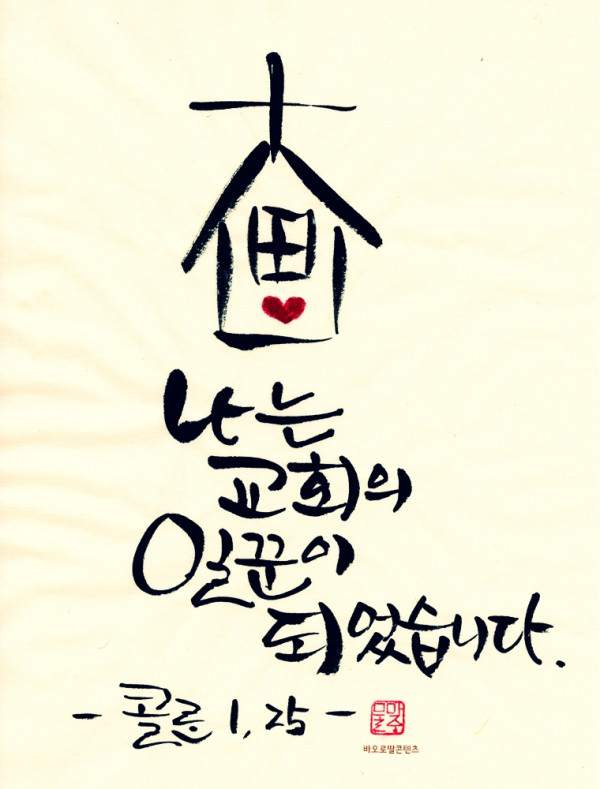 나는
교회의
일꾼이
되었습니다.
- 콜로 1,25 -
바오로딸콘텐츠